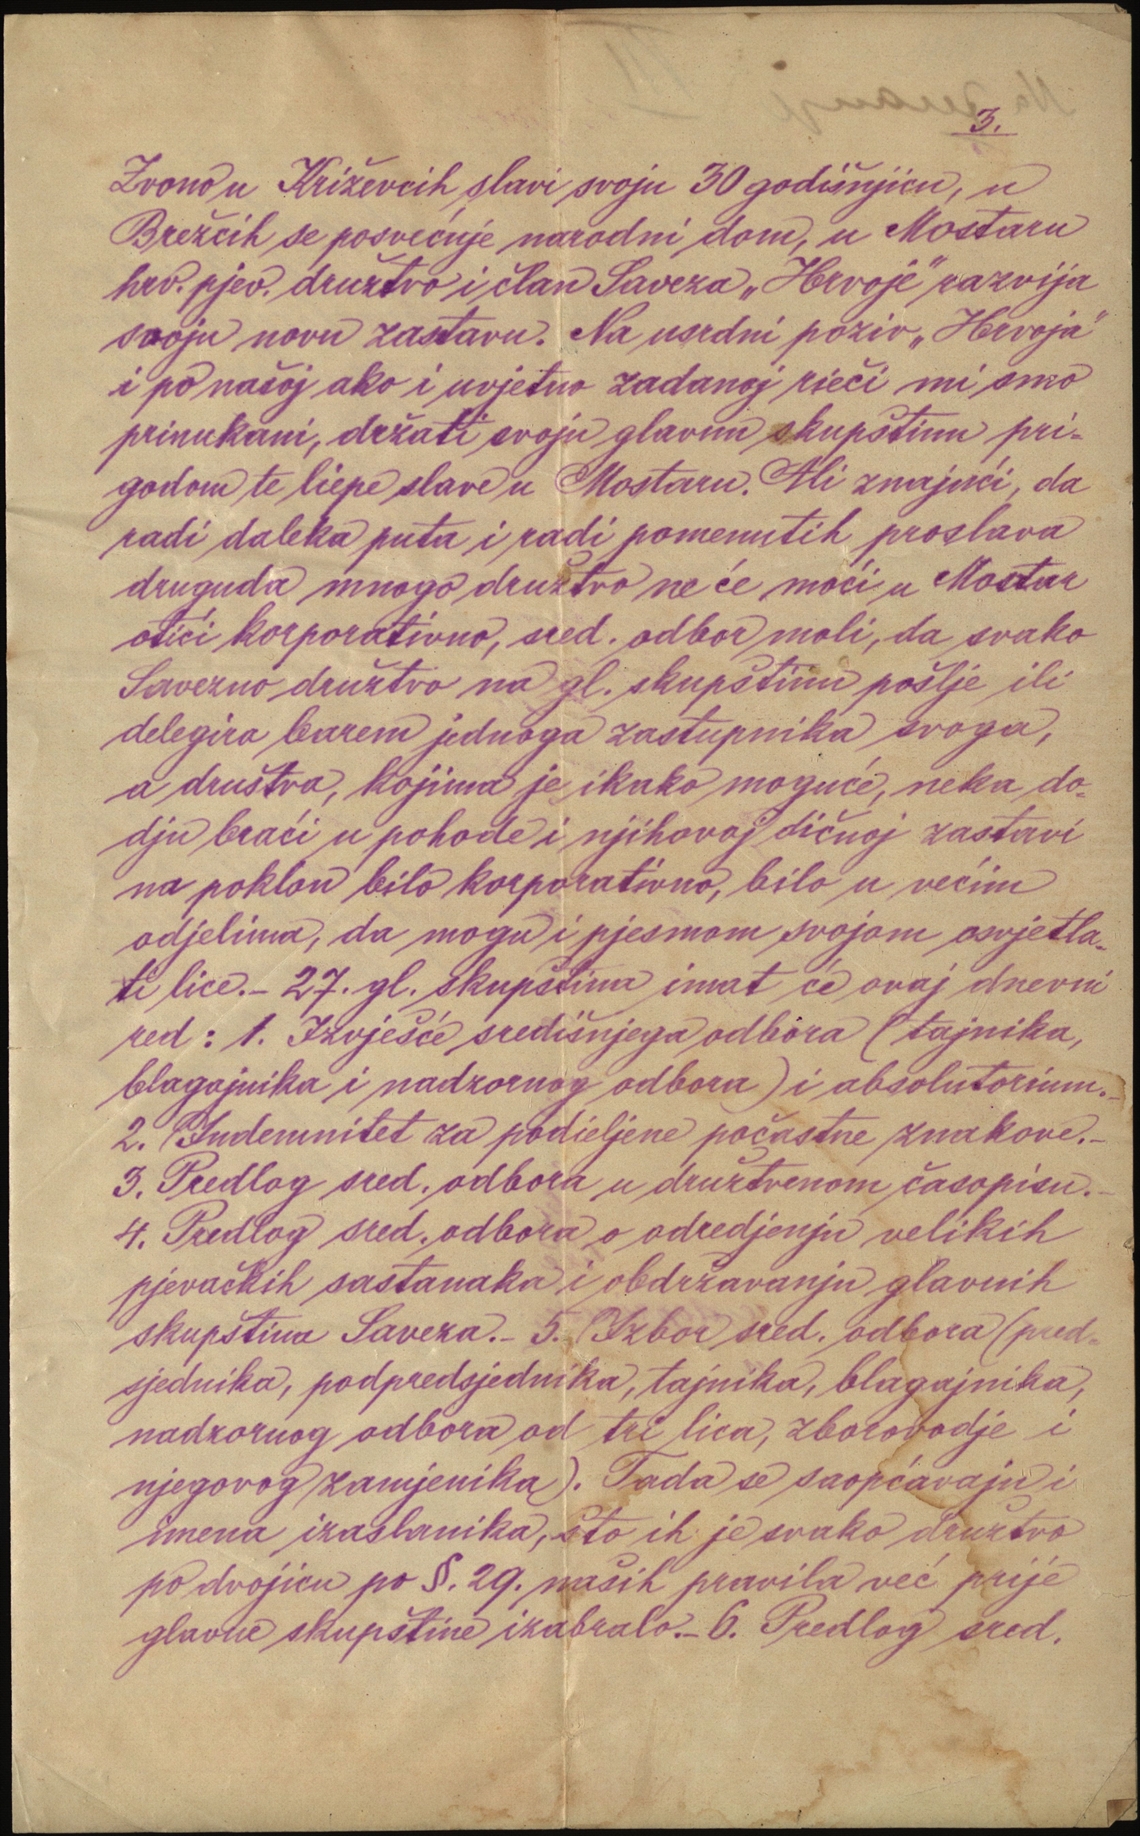 3.
Zvono u Križevcih slavi svoju 30 godišnjicu, u
Brežcih se posvećuje narodni dom, u Mostaru
hrv. pjev. družtvo i član Saveza „Hrvoje" razvija
svoju novu zastavu. Na usrdni poziv „Hrvoja"
i po našoj ako i uvjetno zadanoj rieči mi smo
prinukani, držati svoju glavnu skupštinu pri-
godom te liepe slave u Mostaru. Ali znajući, da
radi daleka puta i radi pomenutih proslava
druguda mnogo družtvo ne će moći u Mostar
otići korporativno, sred. odbor moli, da svako
Savezno družtvo na gl. skupštinu pošlje ili
delegira barem jednoga zastupnika svoga,
a društva, kojima je ikako moguće, neka do-
dju braći u pohode i njihovoj dičnoj zastavi
na poklon bilo korporativno, bilo u većim
odjelima, da mogu i pjesmom svojom osvjetla-
ti lice.- 27. gl. skupština imat će ovaj dnevni
red: 1. Izvješće središnjega odbora (tajnika,
blagajnika i nadzornog odbora) i absolutorium.-
2. Indemnitet za podieljene počastne znakove.-
3. Predlog sred. odbora u družtvenom časopisu.-
4. Predlog sred. odbora o odredjenju velikih
pjevačkih sastanaka i obdržavanju glavnih
skupština Saveza.- 5. Izbor sred. odbora (pred-
sjednika, podpredsjednika, tajnika, blagajnika,
nadzornog odbora od tri lica, zborovodje i
njegovog zamjenika). Tada se saopćavaju i
imena izaslanika, što ih je svako družtvo
po dvojicu po §. 29. naših pravila već prije
glavne skupštine izabralo.- 6. Predlog sred.